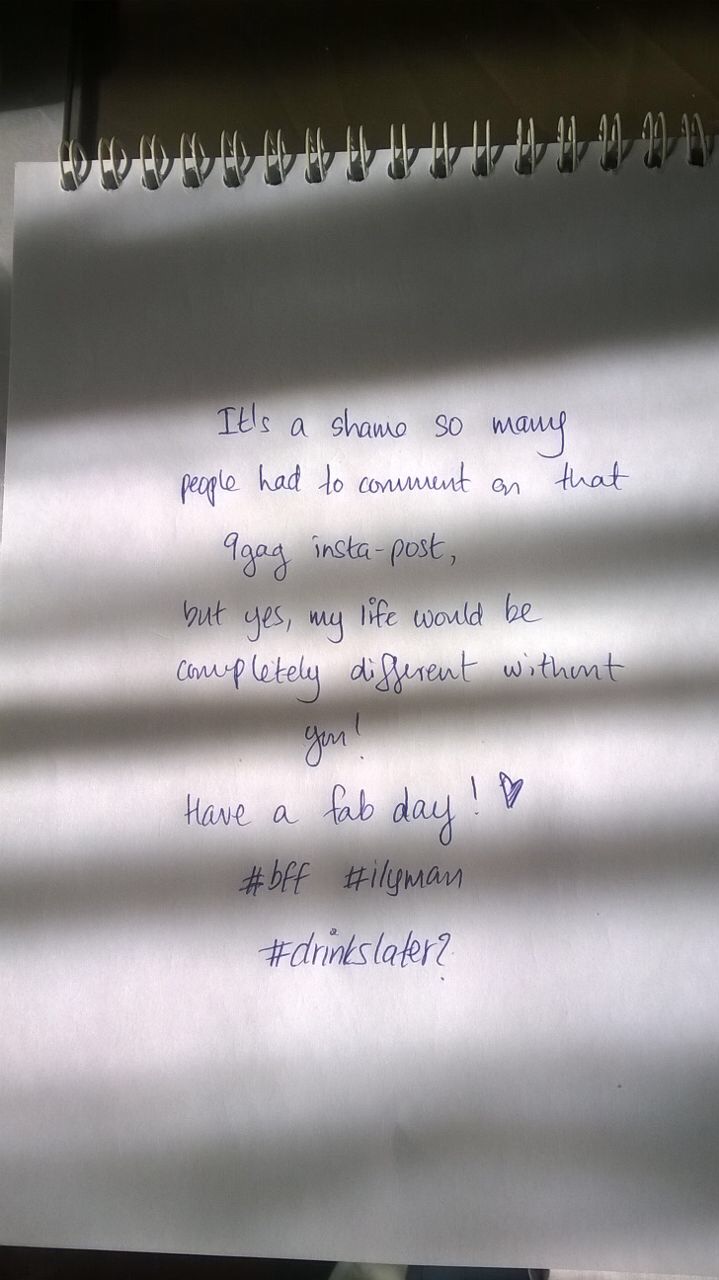 It's a shame so many
people had to comment on that
9gag insta-post,
but yes, my life would be
completely different without
you!
Have a fab day! ♥
#bff #ilyman
#drinkslater?